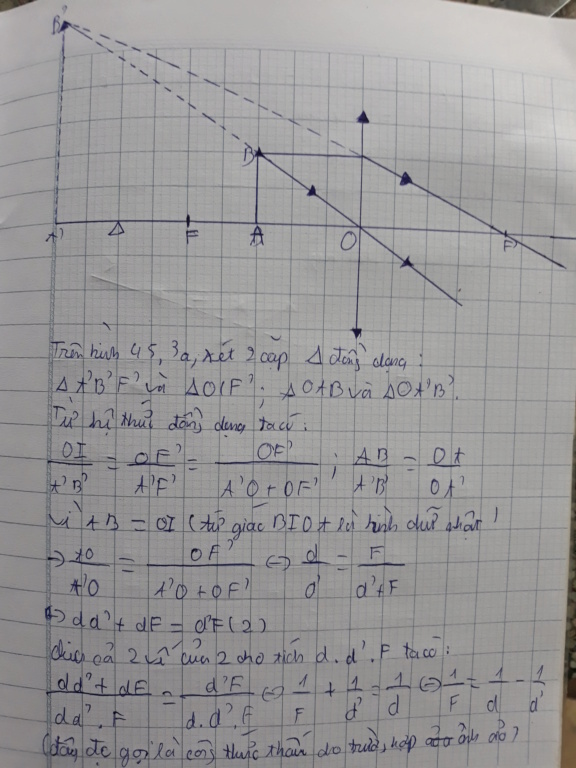 B'
B
A' Δ F A O F'
Trên hình 45, 3a, xét 2 cặp Δ đồng dạng:
Δ A'B'F' và Δ OIF'; Δ OAB và Δ OA'B'.
Từ hệ thức đồng dạng ta có:
OI/A'B' = OF'/A'F' = OF'/A'O + OF' ; AB/A'B' = OA/OA'
Vì AB = OI (tứ giác BIOA là hình chữ nhật)
→ AO/A'O = OF'/A'O + OF' ⇔ d/d' = F/d'+F
⇔ dd' + dF = d'F (2)
cả 2 vế của 2 cho tích d. d'. F ta có:
dd' + dF/dd'.F = d'F/d.d'.F ⇔ 1/F + 1/d' = 1/d ⇔ 1/F = 1/d - 1/d'
(đây đc gọi là công thức thấu cho trường hợp ảnh ảo)